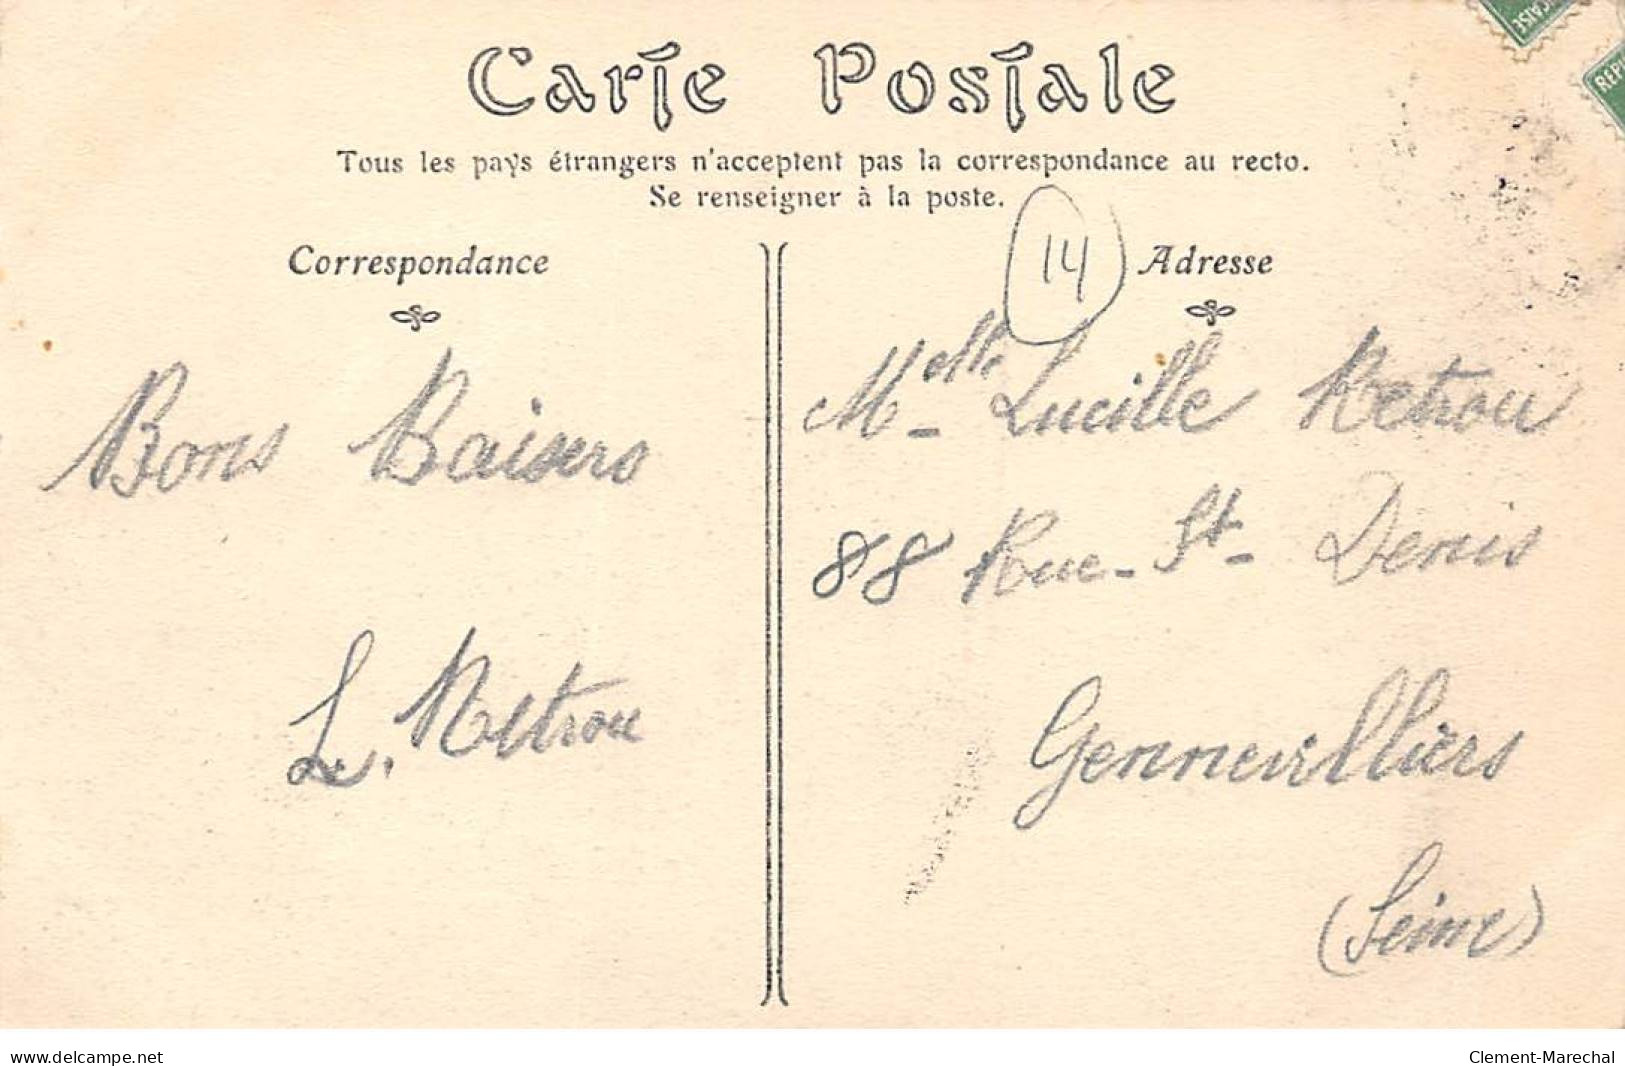 Carte Postale
Tous les pays étrangers n'acceptent pas la correspondance au recto.
Se renseigner à la poste.
Correspondance
Bons Baisers
L. Metrou
14
Adresse
Melle Lucille Metrou
88 Rue - St - Denis
Gennevilliers
(Seine)
www.delcampe.net
Clement-Marechal